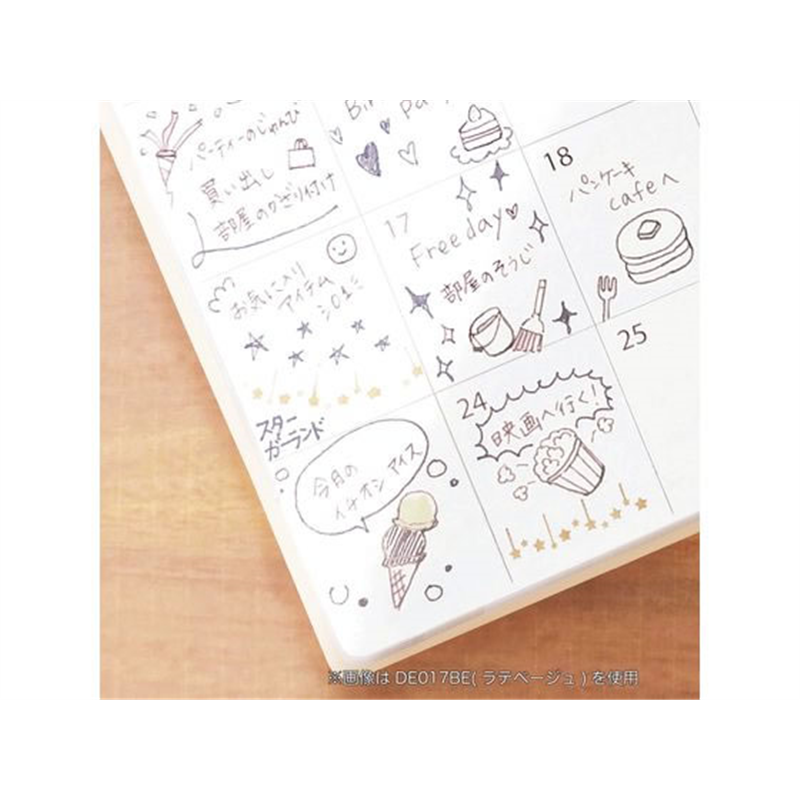 パーティーのじゅんび
買い出し
部屋のかざり付け
お気に入り
アイテム
17
Free day♡
部屋のそうじ
18
パンケーキ
cafeへ
スター
ガーランド
今月の
イチオシ アイス
24
映画へ行く!
25
※画像は DE017BE( ラテベージュ ) を使用